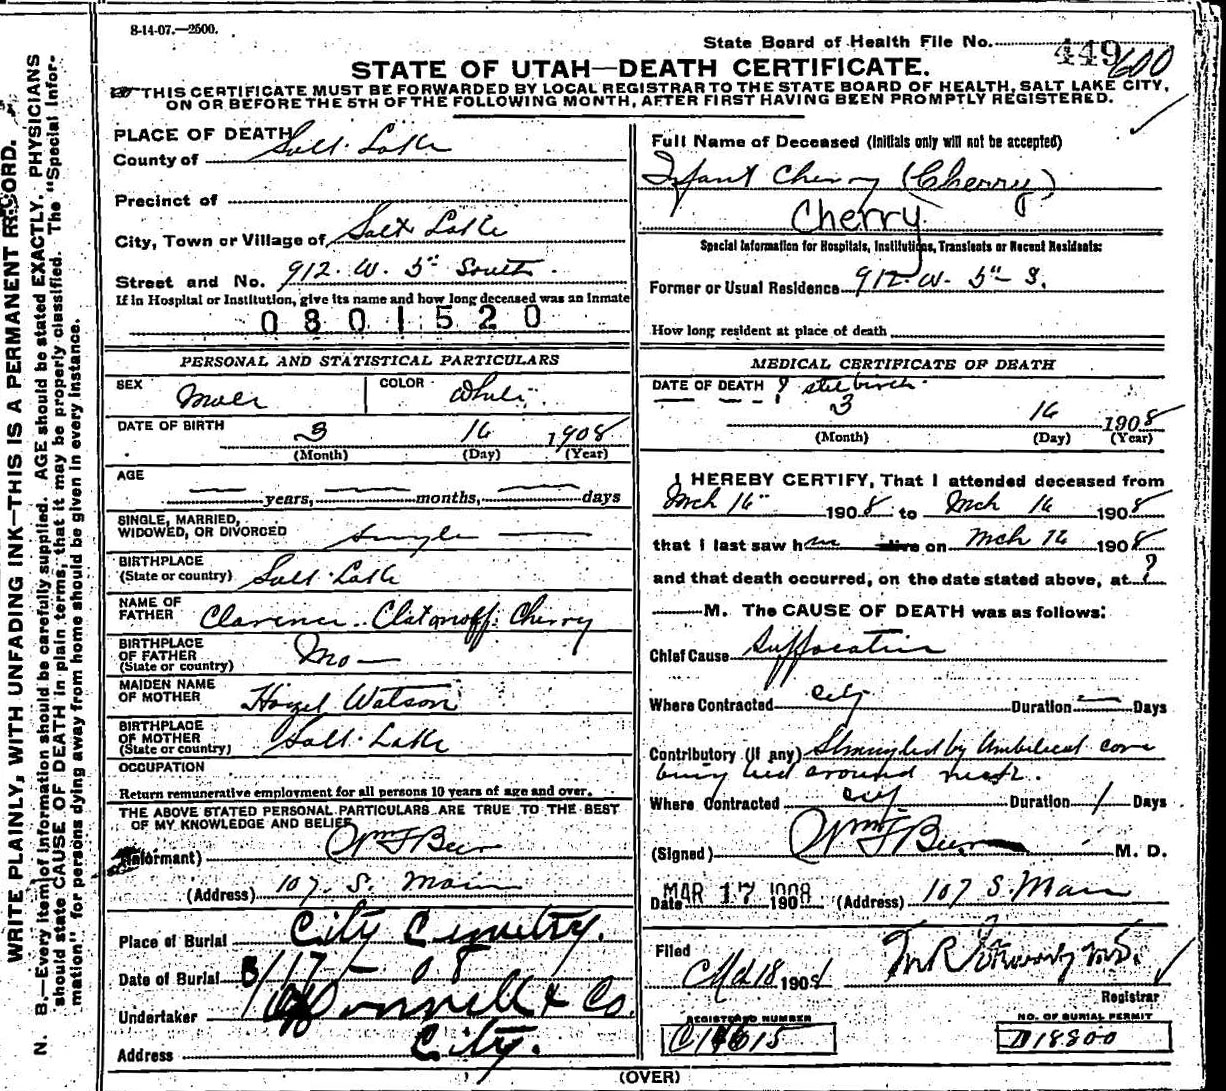 8-14-07.—2500.
State Board of Health File No. 449 600
STATE OF UTAH—DEATH CERTIFICATE.
THIS CERTIFICATE MUST BE FORWARDED BY LOCAL REGISTRAR TO THE STATE BOARD OF HEALTH, SALT LAKE CITY,
ON OR BEFORE THE 5TH OF THE FOLLOWING MONTH, AFTER FIRST HAVING BEEN PROMPTLY REGISTERED.
WRITE PLAINLY, WITH UNFADING INK—THIS IS A PERMANENT RECORD.
N. B.—Every item of information should be carefully supplied. AGE should be stated EXACTLY. PHYSICIANS
should state CAUSE OF DEATH in plain terms, that it may be properly classified. The "Special Infor-
mation" for persons dying away from home should be given in every instance.
PLACE OF DEATH
County of Salt Lake
Precinct of
City, Town or Village of Salt Lake
Street and No. 912. W. 5" South
If in Hospital or Institution, give its name and how long deceased was an Inmate
0801520
PERSONAL AND STATISTICAL PARTICULARS
SEX Male COLOR White
DATE OF BIRTH 3 16 1908
(Month) (Day) (Year)
AGE
— years, — months, — days
SINGLE, MARRIED,
WIDOWED, OR DIVORCED Single
BIRTHPLACE
(State or country) Salt Lake
NAME OF
FATHER Clarence Cherry
BIRTHPLACE
OF FATHER
(State or country) Mo—
MAIDEN NAME
OF MOTHER Hazel Watson
BIRTHPLACE
OF MOTHER
(State or country) Salt Lake
OCCUPATION
Return remunerative employment for all persons 10 years of age and over.
THE ABOVE STATED PERSONAL PARTICULARS ARE TRUE TO THE BEST
OF MY KNOWLEDGE AND BELIEF
(Informant) Wm F Beer
(Address) 107. S. Main
Place of Burial City Cemetry.
Date of Burial 3/17 - 08
Undertaker O'Donnell & Co.
Address City.
Full Name of Deceased (Initials only will not be accepted)
Infant Cherry (Cherry)
Cherry
Special Information for Hospitals, Institutions, Transients or Recent Residents:
Former or Usual Residence 912. W. 5" S.
How long resident at place of death
MEDICAL CERTIFICATE OF DEATH
DATE OF DEATH ? still birth
3 16 1908
(Month) (Day) (Year)
I HEREBY CERTIFY, That I attended deceased from
Mch 16" 1908 to Mch 16 1908
that I last saw him alive on Mch 16 1908
and that death occurred, on the date stated above, at ?
M. The CAUSE OF DEATH was as follows:
Chief Cause Suffocation
Where Contracted city Duration — Days
Contributory (if any) Strangled by Umbilical cord
being tied around neck.
Where Contracted city Duration 1 Days
(Signed) Wm F Beer M. D.
Date MAR 17 1908 190 (Address) 107 S. Main
Filed
Mch 18 1908
Registrar
REGISTERED NUMBER
NO. OF BURIAL PERMIT
D18800
(OVER)